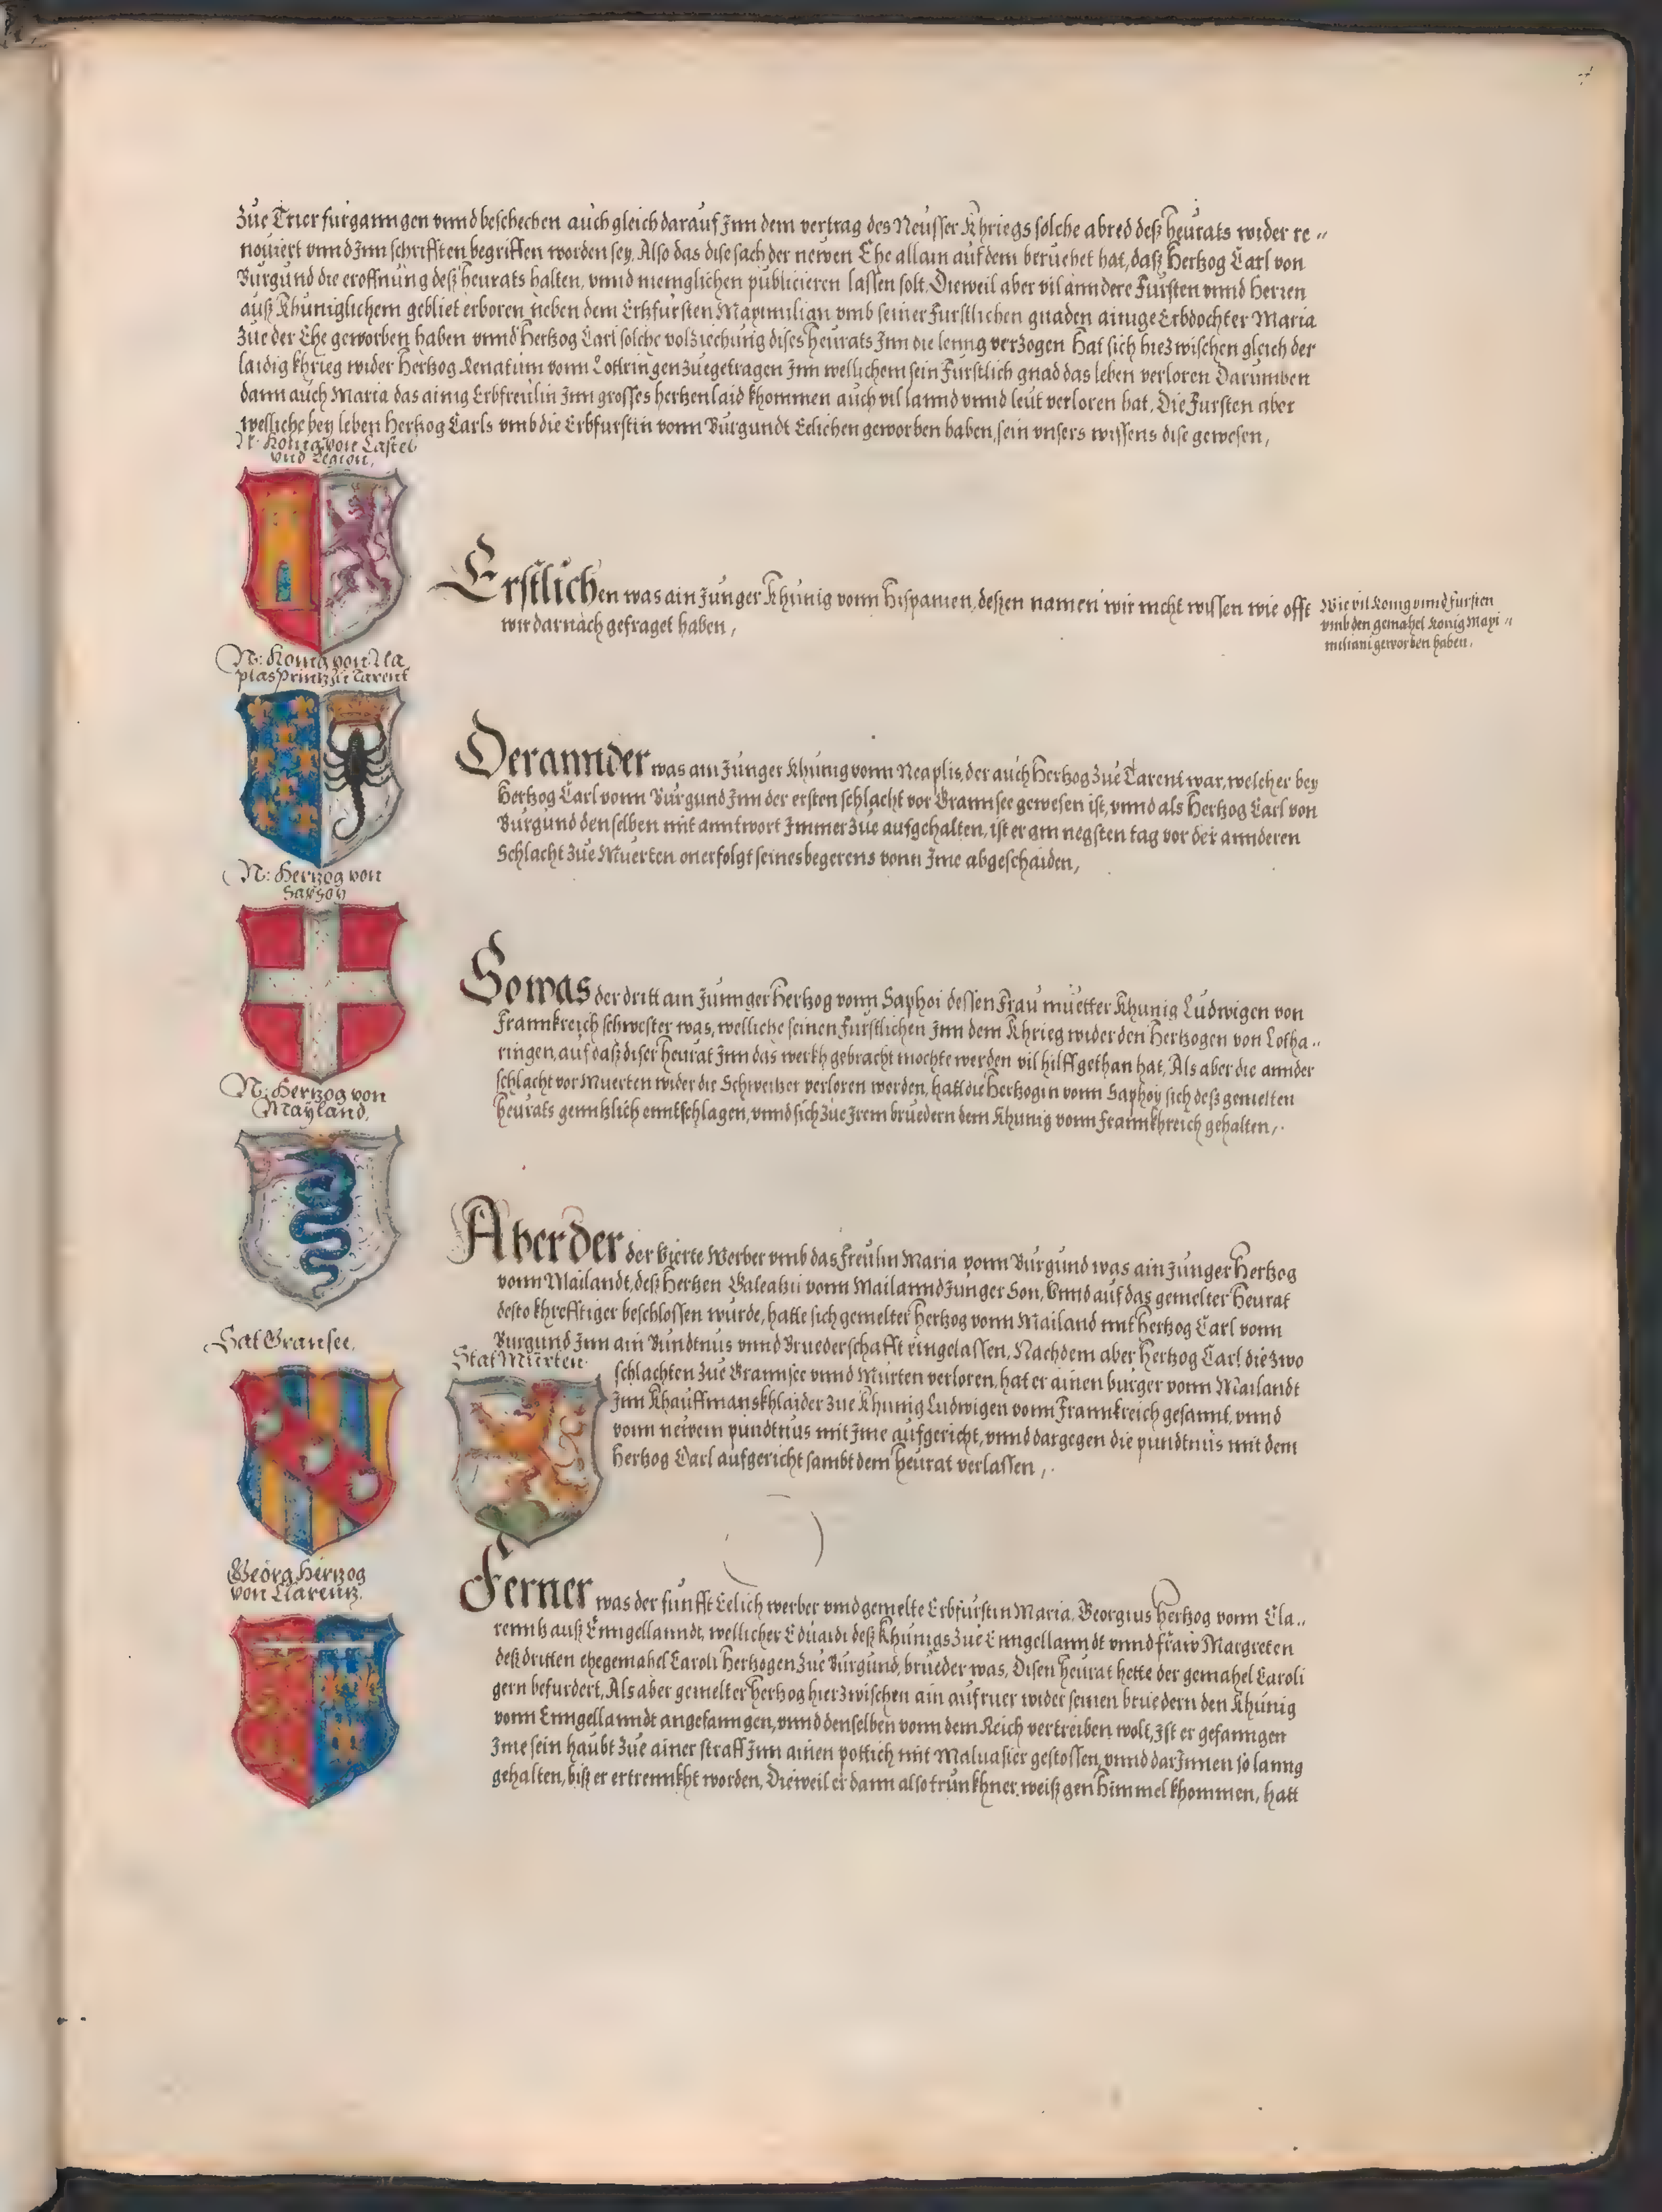 Zue Trier furganngen vnnd beschechen auch gleich darauf Jnn dem vertrag des Neüsser Khriegs solche abred deß heurats wider re„
nouiert vnnd Jnn schrifften begriffen worden sey. Also das dise sach der newen Ehe allain auf dem beruehet hat, daß Hertzog Carl von
Burgund die eroffnung deß heurats halten, vnnd menglichen publicieren lassen solt. Dieweil aber vil anndere Fürsten vnnd Herren
auß Khuniglichem gebliet erboren, neben dem Ertzfürsten Maximilian vmb seiner furstlichen gnaden ainige Erbdochter Maria
Zue der Ehe geworben haben vnnd Hertzog Carl solche volziechung dises heurats Jnn die leng verzogen Hat sich hiezwischen gleich der
laidig khrieg wider Hertzog Renatum vonn Lottringen zuegetragen Jnn wellichem sein furstlich gnad das leben verloren Darumben
dann auch Maria das ainig Erbfreulin Jnn grosses hertzenlaid khommen auch vil lannd vnnd leüt verloren hat. Die Fursten aber
welliche bey leben Hertzog Carls vmb die Erbfurstin vonn Burgundt Eelichen geworben haben, sein vnsers wissens dise gewesen,
N: Konig von Castel
vnd Legion,
Erstlichen was ain Junger Khünig vonn Hispanien, deßen namen wir nicht wissen wie offt
wir darnach gefraget haben,
Wie vil Konig vnnd fursten
vmb den gemahel Konig Maxi„
miliani geworben haben.
N: Konig von Nea
plas Printz zu Tarent
Der annder was ain Junger Khünig vonn Neaplis, der auch Hertzog zue Tarent war, welcher bey
Hertzog Carl vonn Burgund Jnn der ersten schlacht vor Grannsee gewesen ist, vnnd als Hertzog Carl von
Burgund denselben mit anntwort Jmmer zue aufgehalten, ist er am negsten tag vor der annderen
Schlacht zue Muerten onerfolgt seines begerens vonn Jme abgeschaiden,
N: Hertzog von
Saffoy
So was der dritt ain Junnger Hertzog vonn Saphoi dessen Frau muetter Khunig Ludwigen von
Frannkreich schwester was, welliche seinen furstlichen Jnn dem Khrieg wider den Hertzogen von Lotha„
ringen, auf daß diser heurat Jnn das werkh gebracht mochte werden vil hilff gethan hat, Als aber die annder
schlacht vor Muerten wider die Schweitzer verloren worden, hatt die Hertzogin vonn Saphoy sich deß gemelten
heurats genntzlich enntschlagen, vnnd sich zue Jrem bruedern dem Khunig vonn Frannkhreich gehalten,
N: Hertzog von
Mayland,
Aber der der vierte Werber vmb das freulin Maria vonn Burgund was ain Junger Hertzog
vonn Mailandt, deß Hertzen Galeatzii vonn Mailannd Junger Son, Vnnd auf das gemelter Heurat
desto khrefftiger beschlossen wurde, hatte sich gemelter hertzog vonn Mailand mit hertzog Carl vonn
Burgund Jnn ain Bündtnus vnnd Bruederschafft eingelassen, Nachdem aber Hertzog Carl die zwo
schlachten zue Grannsee vnnd Murten verloren, hat er ainen burger vonn Mailandt
Jnn Khauffmanskhlaider zue Khunig Ludwigen vonn Frannkreich gesannt, vnnd
vonn neiwem pündtnus mit Jme aufgericht, vnnd dargegen die pundtnus mit dem
Hertzog Carl aufgericht sambt dem heurat verlassen,
Sat Gransee.
Stat Muerten
Georg Hertzog
von Clarentz.
Ferner was der funfft Eelich werber vmb gemelte Erbfürstin Maria, Georgius Hertzog vonn Cla„
renntz auß Enngellanndt, wellicher Eduardi deß Khunigs zue Enngellanndt vnnd fraw Margreten
deß dritten ehegemahel Caroli Hertzogen zue Burgund, brueder was, Disen heurat hette der gemahel Caroli
gern befurdert, Als aber gemelter hertzog hierzwischen ain aufruer wider seinen bruedern den Khünig
vonn Enngellanndt angefanngen, vnnd denselben vonn dem Reich vertreiben wolt, Ist er gefanngen
Jme sein haubt zue ainer straff Jnn ainen pottich mit Maluasier gestossen, vnnd darJnnen so lanng
gehalten, biß er ertrennkht worden, Dieweil er dann also trunkhner weiß gen Himmel khommen, hatt